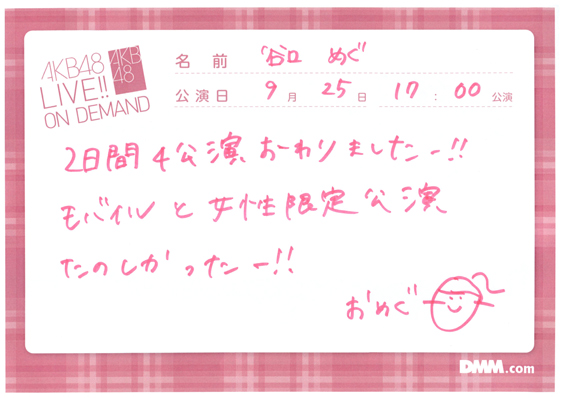 AKB48
LIVE!!
ON DEMAND
AKB
48
名前 谷口 めぐ
公演日 9月 25日 17:00 公演
2日間4公演おーわりましたー!!
モバイルと女性限定公演
たのしかったー!!
おめぐ
DMM.com